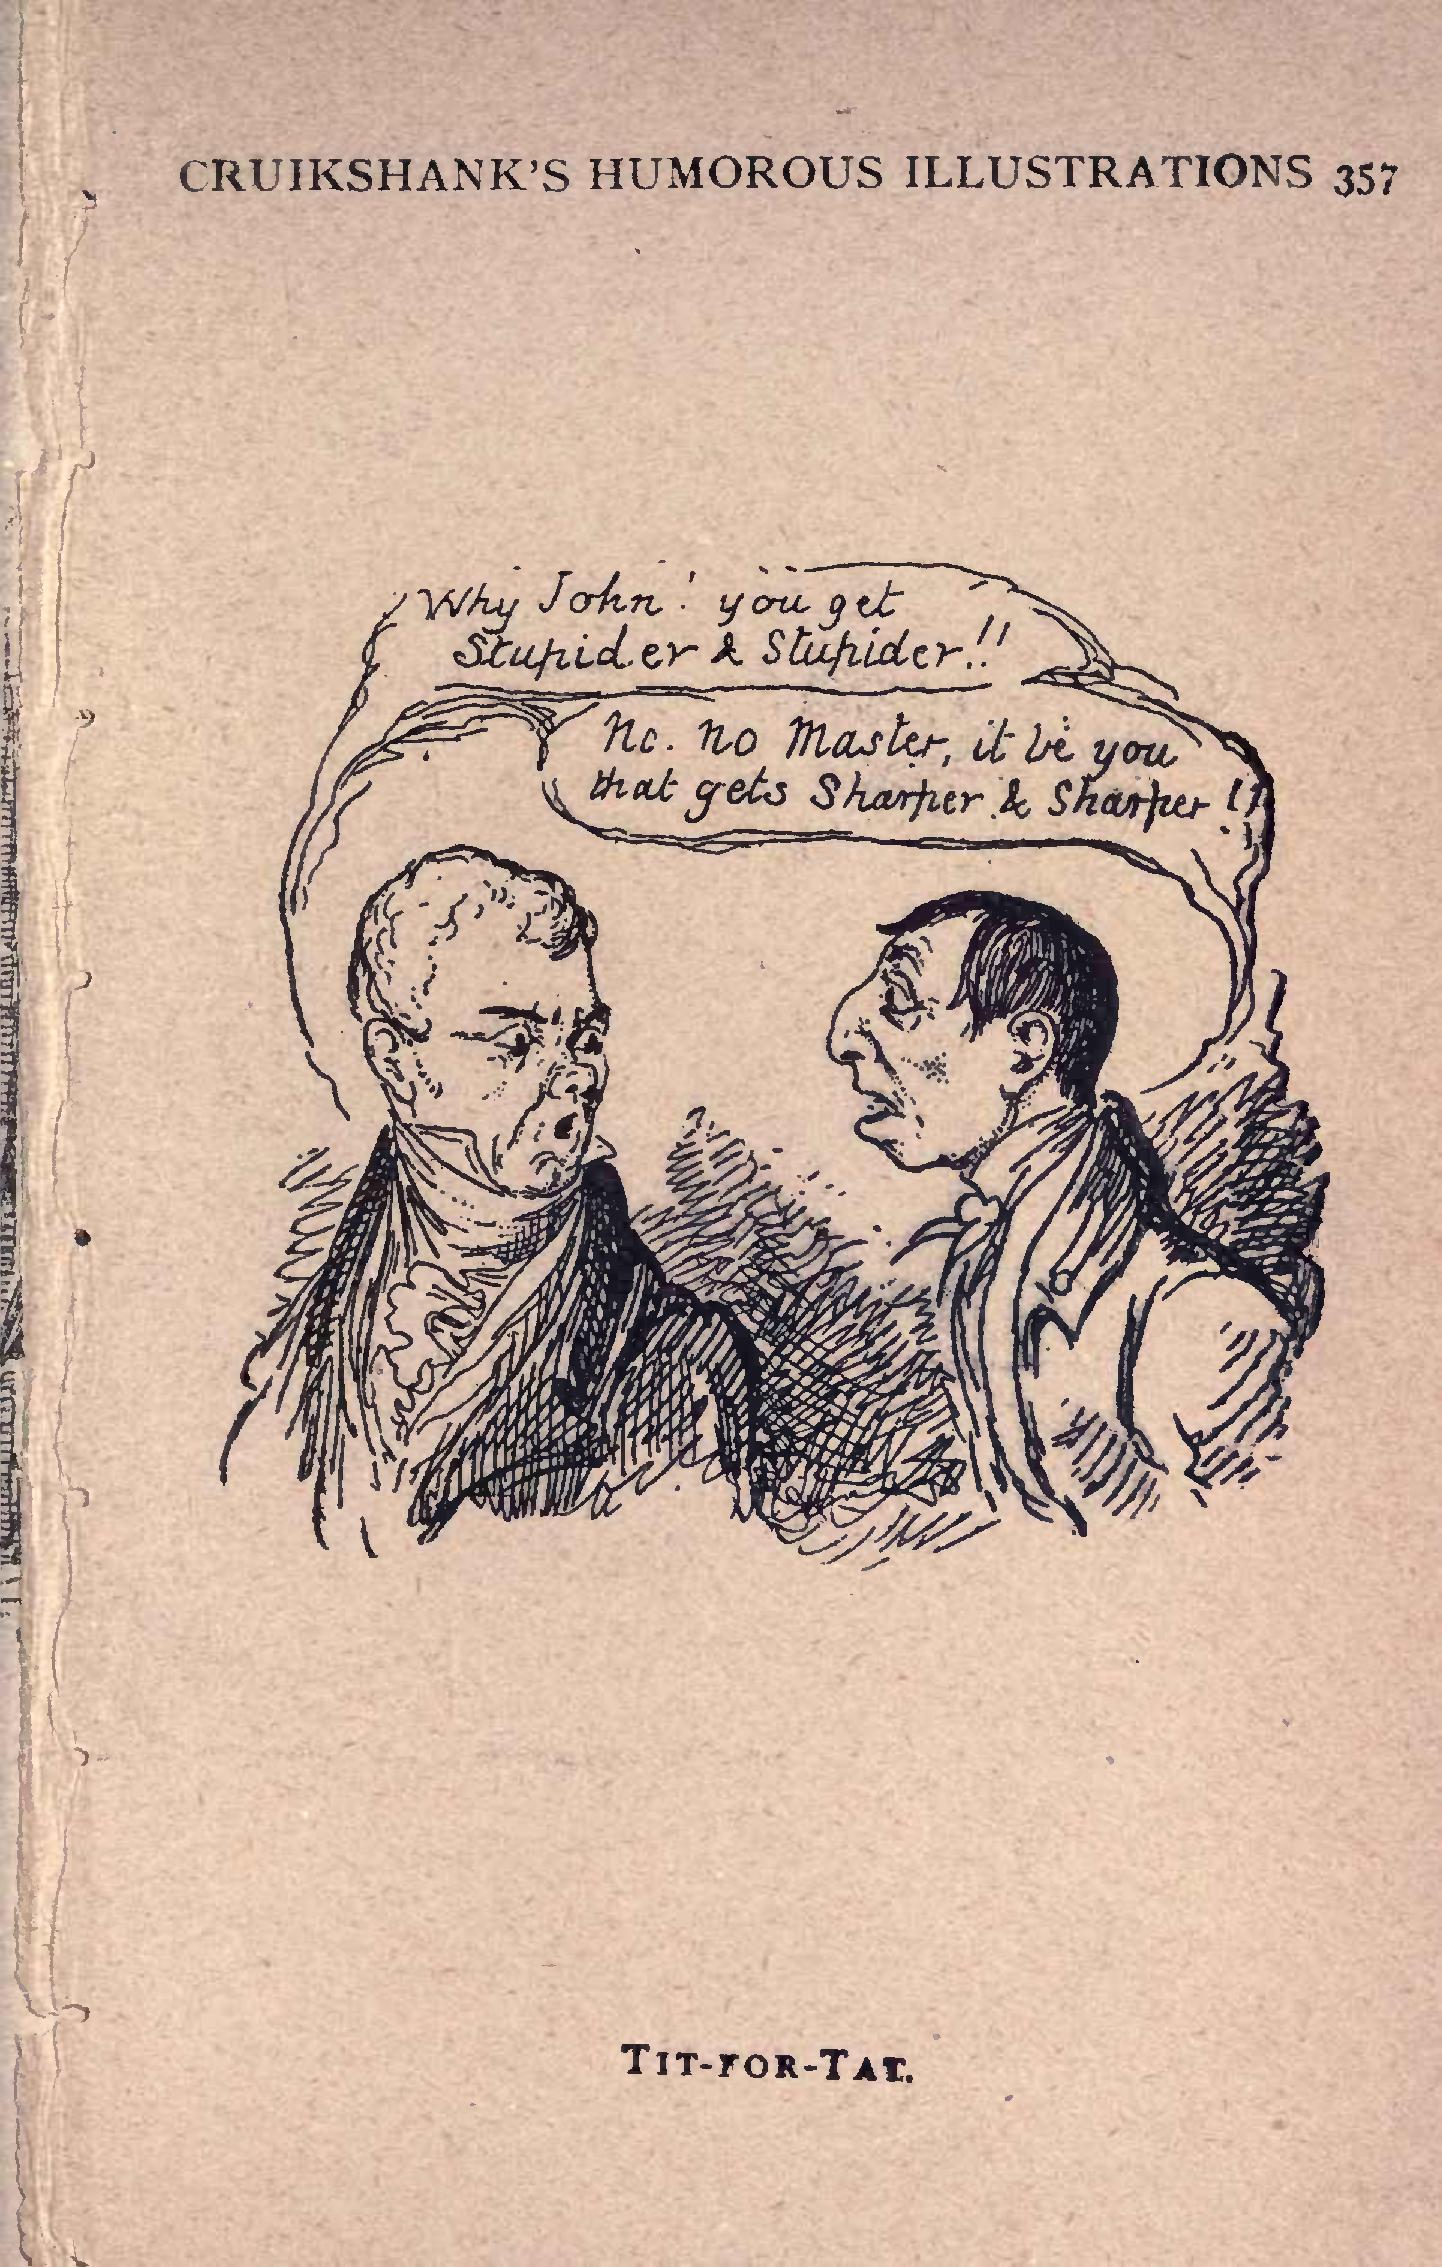 CRUIKSHANK'S HUMOROUS ILLUSTRATIONS 357
Why John! you get
Stupider & Stupider!!
No. no Master, it be you
that gets Sharper & Sharper!!
TIT-FOR-TAT.